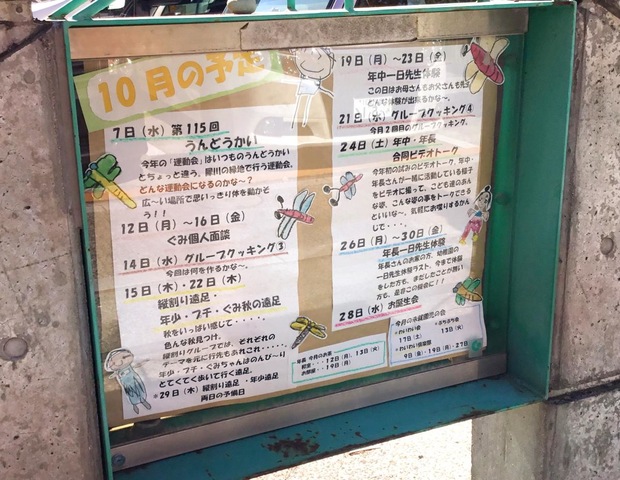 10月の予定
7日（水）第115回
うんどうかい
今年の「運動会」はいつものうんどうかい
とちょっと違う、犀川の緑地で行う運動会。
どんな運動会になるのかな～？
広～い場所で思いっきり体を動かそ
う！！
12日（月）～16日（金）
ぐみ個人面談
14日（水）グループクッキング③
今回は何を作るかな～。
15日（木）・22日（木）
縦割り遠足・
年少・プチ・ぐみ秋の遠足
秋をいっぱい感じて・・・・。
色んな秋見つけ。
縦割りグループでは、それぞれの
テーマを元に行先もあれこれ・・・・。
年少・プチ・ぐみちゃんはのんび～り
とてくてく歩いて行く遠足。
*29日（木）縦割り遠足・年少遠足
両日の予備日
19日（月）～23日（金）
年中一日先生体験
この日はお母さんもお父さんも先
どんな体験が出来るかな～。
21日（水）グループクッキング④
今月2回目のグループクッキング。
24日（土）年中・年長
合同ビデオトーク
今年初の試みのビデオトーク、年中・
年長さんが一緒に活動している様子
をビデオに撮って、こども達のあん
な姿、こんな姿の事をトークできると
といいな～、気軽にお喋りするかん
じで・・・・。
26日（月）～30日（金）
年長一日先生体験
年長さんのお家の方、幼稚園の
一日先生体験ラスト、今まで体験
をした方も、まだしたことが無い
方も、是非この機会に！！
28日（水）お誕生会
年長 今月のお茶
・・・12日（月）、13日（火）
・・・19日（月）
今月の未就園児の会
*わいわい会
17日（土）
*ぷちぷち会
13日（火）
*わいわい倶楽部
9日（金）・19日（月）・27日